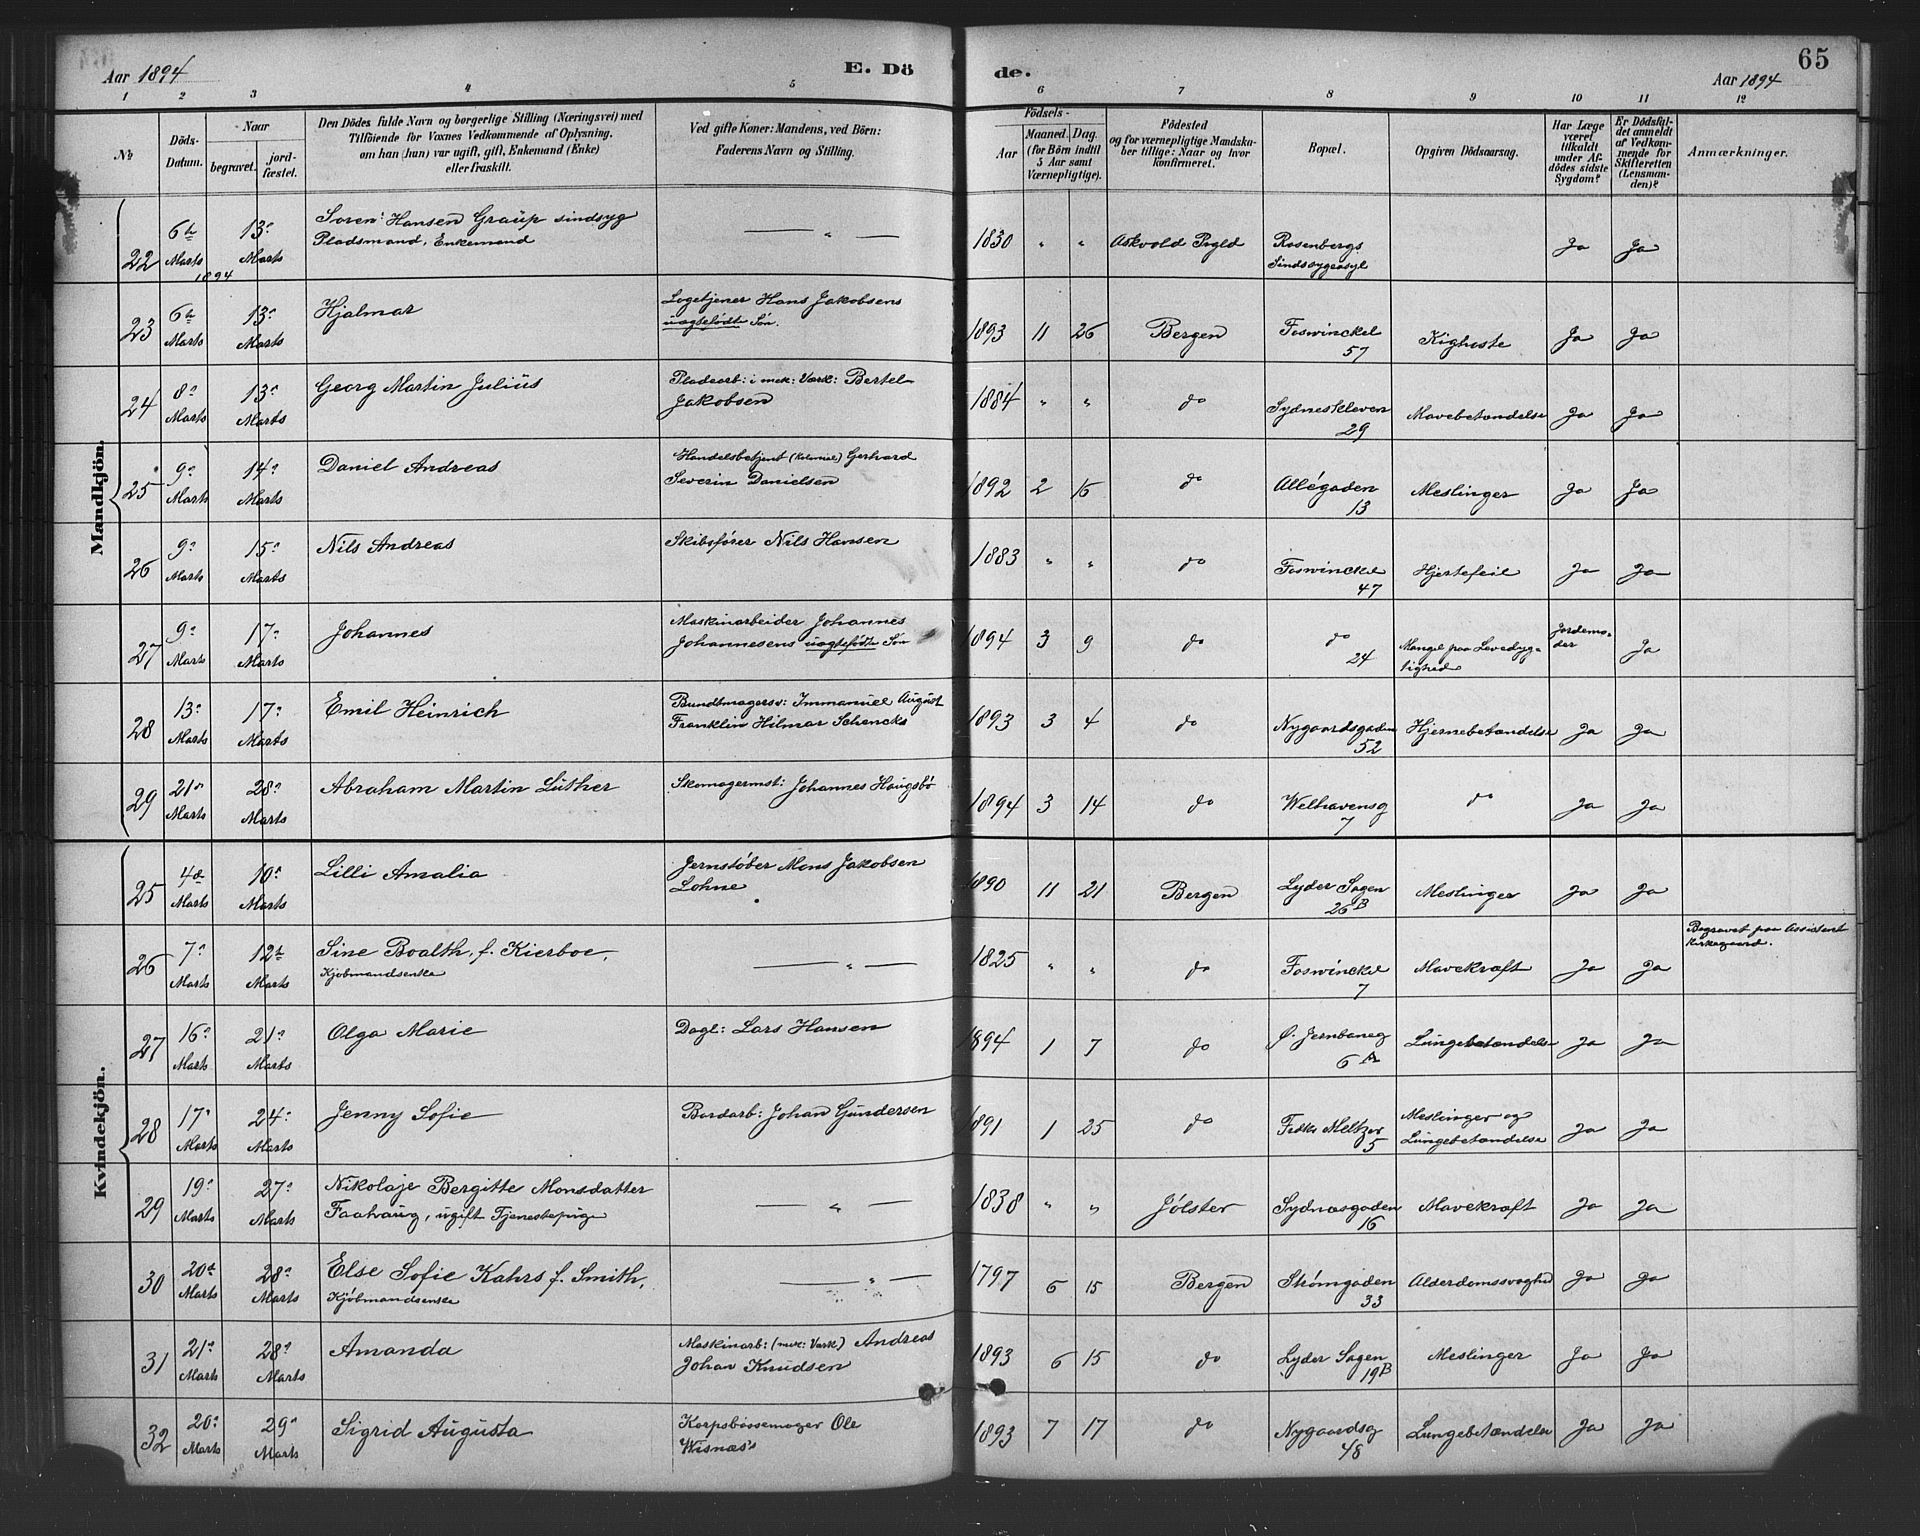 Aar 1894
E. Dö
de.
Aar 1894
65
1 2 3 4 5 6 7 8 9 10 11 12
№
Döds-Datum.
Naar
begravet.
jord-fæstet.
Den Dödes fulde Navn og borgerlige Stilling (Næringsvei) med
Tilföiende for Voxnes Vedkommende af Oplysning.
om han (hun) var ugift, gift, Enkemand (Enke)
eller fraskilt.
Ved gifte Koner: Mandens, ved Börn:
Faderens Navn og Stilling.
Födsels-
Aar
Maaned. Dag.
(for Börn indtil
5 Aar samt
Værnepligtige).
Födested
og for værnepligtige Mandska-
ber tillige: Naar og hvor
konfirmeret.
Bopæl.
Opgiven Dödsaarsag.
Har Læge
været
tilkaldt
under Af-
dödes sidste
Sygdom?
Er Dödsfal-
det anmeldt
af Vedkom-
mende for
Skifteretten
(Lensman-
den)?
Anmærkninger.
Mandkjön.
22 6te Marts 1894 13de Marts Soren Hansen Graup sindsyg
Pladsmand, Enkemand — " — 1830 " " Askvold Prgld Rosenbergs
Sindssygeasyl Ja Ja
23 6te Marts 13de Marts Hjalmar Logetjener Hans Jakobsens
uægtefødte Søn. 1893 11 26 Bergen Foswinckel
57 Kighoste Ja Ja
24 8de Marts 13de Marts Georg Martin Julius Pladearb: i mek: Værk: Bertel
Jakobsen 1884 " " do Sydneskleven
29 Mavebetændelse Ja Ja
25 9de Marts 14de Marts Daniel Andreas Handelsbetjent (Kolonial) Gerhard
Severin Danielsen 1892 2 15 do Allégaden
13 Meslinger Ja Ja
26 9de Marts 15de Marts Nils Andreas Skibsfører Nils Hansen 1883 " " do Foswinckel
47 Hjertefeil Ja Ja
27 9de Marts 17de Marts Johannes Maskinarbeider Johannes
Johannesens uægtefødte Søn 1894 3 9 do do
24 Mangel paa Levedyg-
tighed Jordemo-
der Ja
28 13de Marts 17de Marts Emil Heinrich Bundtmagersv: Immanuel August
Franklin Hilmar Schencks 1893 3 4 do Nygaardsgaden
52 Hjernebetændelse Ja Ja
29 21de Marts 28de Marts Abraham Martin Luther Skomagermst: Johannes Haugsbø 1894 3 14 do Welhavensg
7 do Ja Ja
Kvindekjön.
25 4de Marts 10de Marts Lilli Amalia Jernstøber Mons Jakobsen
Lohne 1890 11 21 Bergen Lyder Sagen
26B Meslinger Ja Ja
26 7de Marts 12te Marts Sine Boalth, f. Kierboe,
Kjøbmandsenke — " — 1825 " " do Foswinckel
7 Mavekræft Ja Ja Begravet paa Assistent
kirkegaard.
27 16de Marts 21de Marts Olga Marie Dagl: Lars Hansen 1894 1 7 do Ø. Jernbaneg
6A Lungebetændelse Ja Ja
28 17de Marts 24de Marts Jenny Sofie Bordarb: Johan Gundersen 1891 1 25 do Fedks Meltzer
5 Meslinger og
Lungebetændelse Ja Ja
29 19de Marts 27de Marts Nikolaje Bergitte Monsdatter
Faahaug, ugift Tjenestepige — " — 1838 " " Jølster Sydnæsgaden
16 Mavekræft Ja Ja
30 20de Marts 28de Marts Else Sofie Kahrs f. Smith,
Kjøbmandsenke — " — 1797 6 15 Bergen Strømgaden
33 Alderdomssvaghed Ja Ja
31 21de Marts 28de Marts Amanda Maskinarb: (mek: Værk) Andreas
Johan Knudsen 1893 6 15 do Lyder Sagen
19B Meslinger Ja Ja
32 20de Marts 29de Marts Sigrid Augusta Korpsbøssemager Ole
Wisnæs's 1893 7 17 do Nygaardsg
48 Lungebetændelse Ja Ja